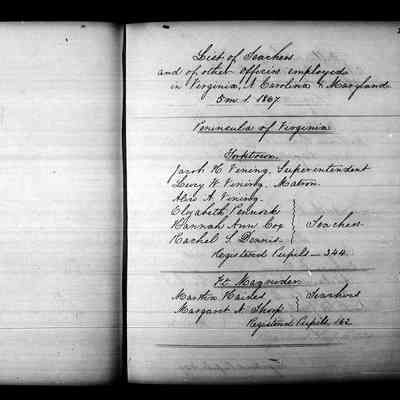 List of Teachers
and of other Officers employed
in Virginia, N Carolina & Maryland
5 m. 1. 1867
Peninsula of Virginia
Yorktown.
Jacob H. Vining, Superintendent
Lucy W. Vining, Matron.
Alice A. Vining.
Elizabeth Pennock
Hannah Ann Cox } Teachers
Rachel S. Dennis
Registered Pupils — 344.
Ft Magruder.
Martha Haines } Teachers
Margaret N Shoop
Registered Pupils, 162